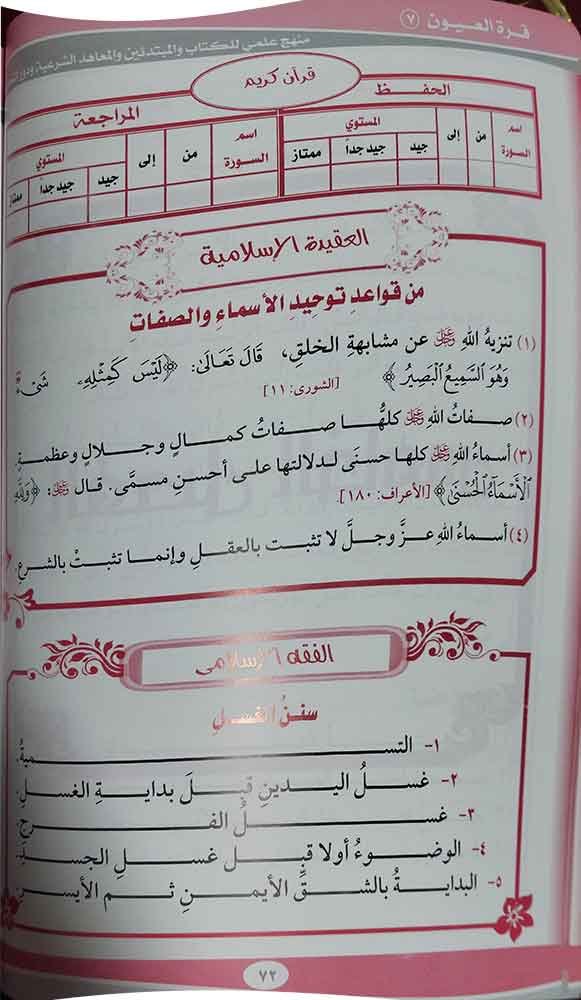 قرة العيون ٧
منهج علمي للكتاب والمبتدئين والمعاهد الشرعية ودور
قرآن كريم
الحفظ
المراجعة
اسم السورة من إلى المستوي
جيد جيد جداً ممتاز
اسم السورة من إلى المستوي
جيد جيد جداً ممتاز
العقيدة الإسلامية
من قواعدِ توحيدِ الأسماءِ والصفاتِ
(١) تنزيهُ اللهِ ﷻ عن مشابهةِ الخلقِ، قَالَ تَعَالَى: ﴿لَيْسَ كَمِثْلِهِ شَيْءٌ
وَهُوَ السَّمِيعُ الْبَصِيرُ﴾ [الشورى: ١١]
(٢) صفاتُ اللهِ ﷻ كلهُّا صفاتُ كمالٍ وجلالٍ وعظمةٍ.
(٣) أسماءُ اللهِ ﷻ كلها حسنَى لدلالتها على أحسنِ مسمَّى. قال ﷻ: ﴿وَلِلَّهِ
الْأَسْمَاءُ الْحُسْنَى﴾ [الأعراف: ١٨٠].
(٤) أسماءُ اللهِ عزَّ وجلَّ لا تثبت بالعقلِ وإنما تثبتُ بالشرعِ.
الفقه الإسلامى
سننُ الغسلِ
١- التسميةُ.
٢- غسلُ اليدينِ قبلَ بدايةِ الغسلِ.
٣- غسلُ الفرجِ.
٤- الوضوءُ أولا قبل غسلِ الجسدِ.
٥- البدايةُ بالشقِّ الأيمنِ ثم الأيسرِ.
٧٢